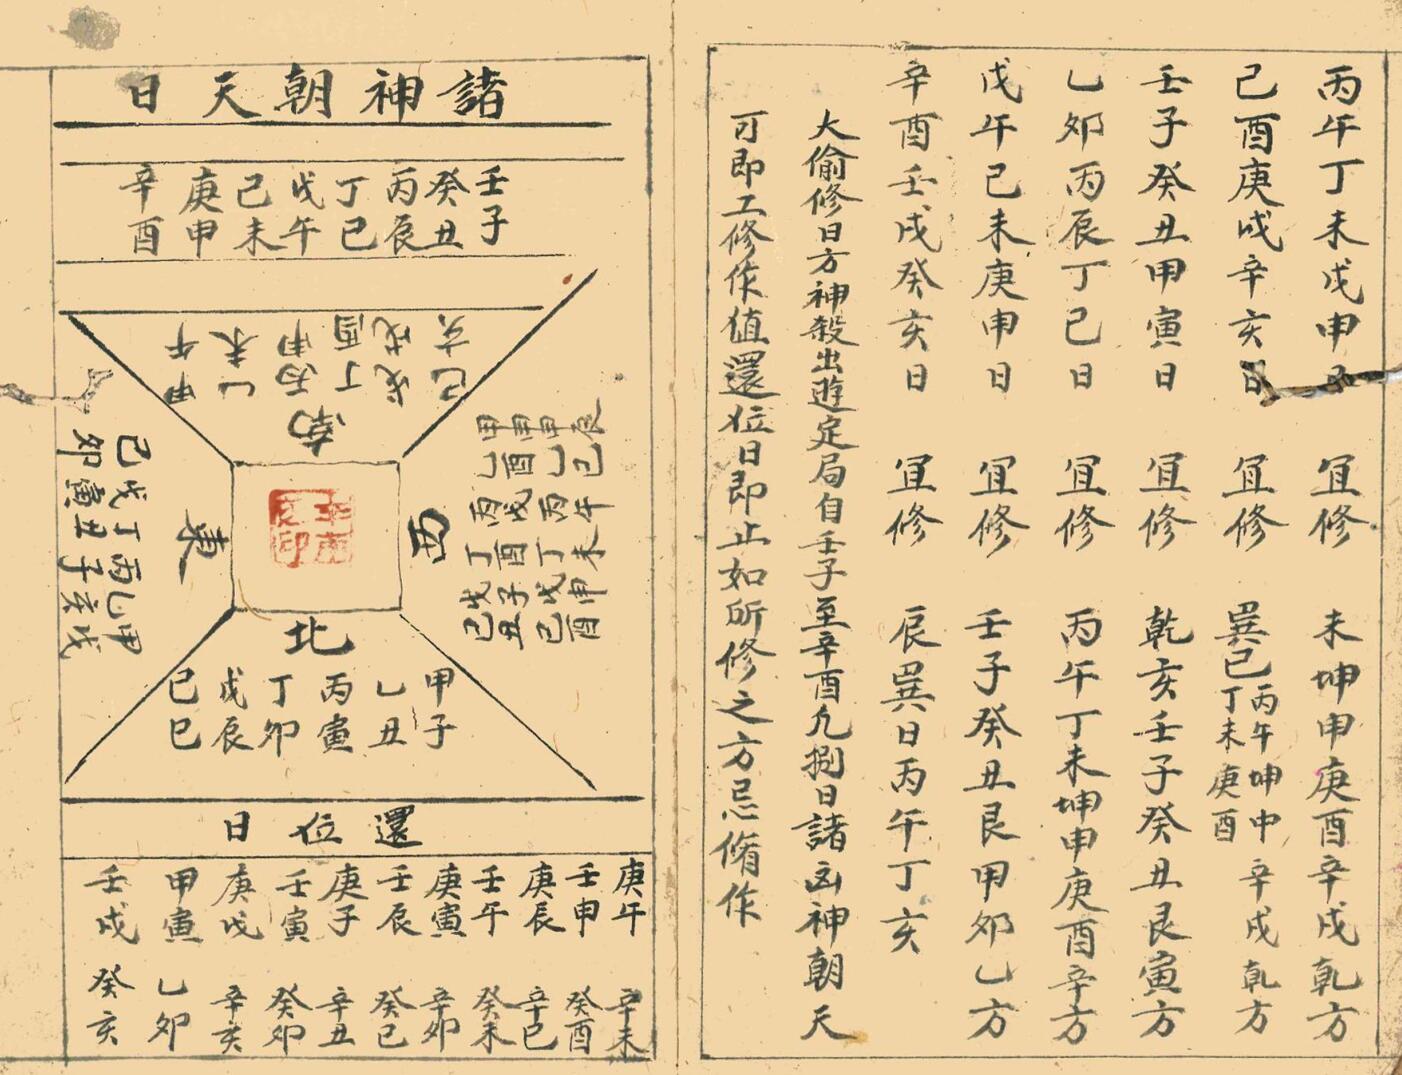 丙午丁未戊申日 宜修 未坤申庚酉辛戌乾方
己酉庚戌辛亥日 宜修 巽巳丙午坤申丁未庚酉辛戌乾方
壬子癸丑甲寅日 宜修 乾亥壬子癸丑艮寅方
乙卯丙辰丁巳日 宜修 丙午丁未坤申庚酉辛方
戊午己未庚申日 宜修 壬子癸丑艮甲卯乙方
辛酉壬戌癸亥日 宜修 辰巽日丙午丁亥
大偷修日方神殺出遊定局自壬子至辛酉凡捌日諸凶神朝天
可即工修作值還位日即止如所修之方忌脩作
諸神朝天日
壬子 癸丑 丙辰 丁巳 戊午 己未 庚申 辛酉
甲午 乙未 丙申 丁酉 戊戌 己亥
南
甲辰 乙巳 丙午 丁未 戊申 己酉
甲申 乙酉 丙戌 丁酉 戊子 己丑
西
東
甲戌 乙亥 丙子 丁丑 戊寅 己卯
北
甲子 乙丑 丙寅 丁卯 戊辰 己巳
還位日
庚午 辛未
壬申 癸酉
庚辰 辛巳
壬午 癸未
庚寅 辛卯
壬辰 癸巳
庚子 辛丑
壬寅 癸卯
庚戌 辛亥
甲寅 乙卯
壬戌 癸亥